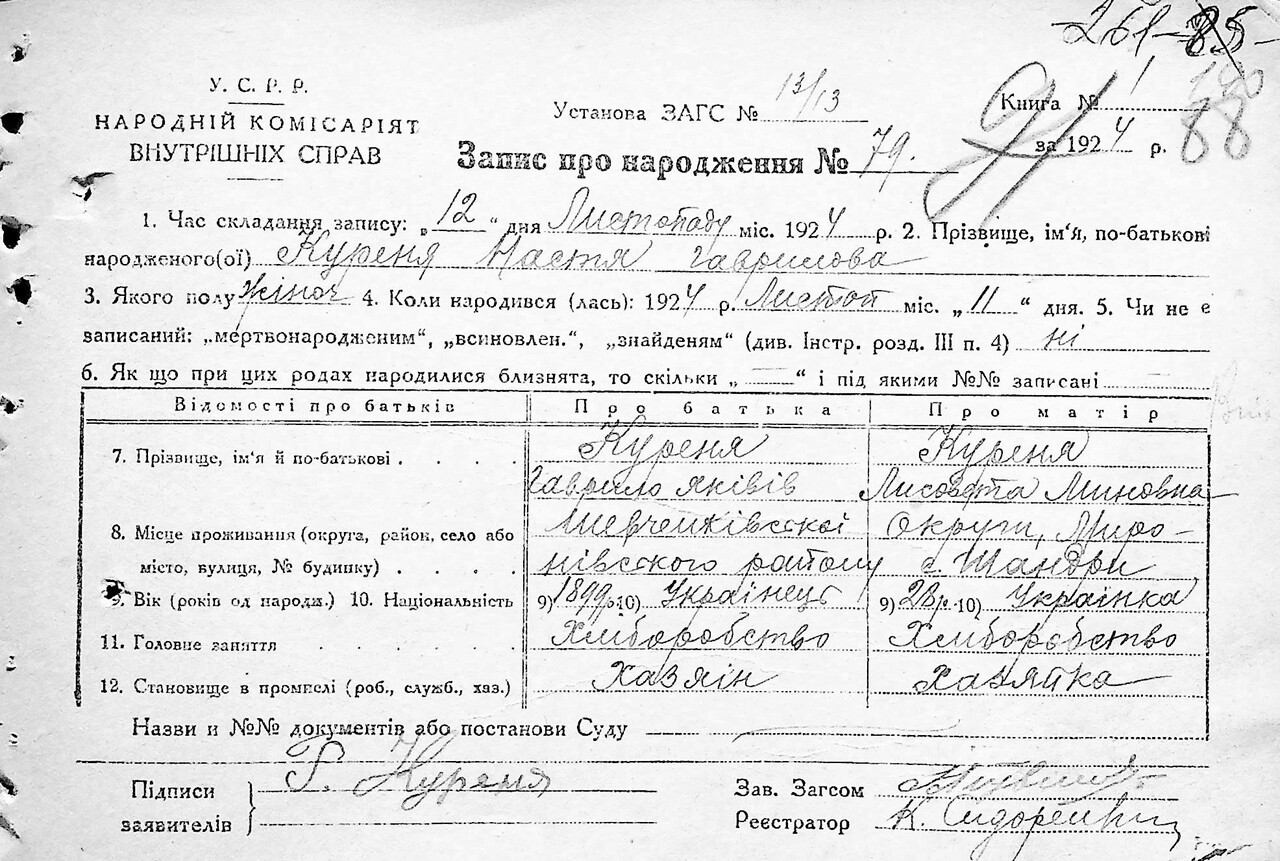 261-85-
180
88
91
У. С. Р. Р.
НАРОДНІЙ КОМІСАРІЯТ
ВНУТРІШНІХ СПРАВ
Установа ЗАГС № 13/13
Книга № 1
за 1924 р.
Запис про народження № 79.
1. Час складання запису: „12“ дня Листопаду міс. 1924 р. 2. Прізвище, ім'я, по-батькові
народженого(ої) Куреня Настя Гаврилова
3. Якого полу жіноч 4. Коли народився (лась): 1924 р. Листоп міс. „11“ дня. 5. Чи не є
записаний: „мертвонародженим“, „всиновлен.“, „знайденям“ (див. Інстр. розд. III п. 4) ні
6. Як що при цих родах народилися близнята, то скільки „—“ і під якими №№ записані
Відомості про батьків Про батька Про матір
7. Прізвище, ім'я й по-батькові . . . . Куреня Куреня
Гаврило Яківів Лисовета Миновна
8. Місце проживання (округа, район, село або Шевченківської Округи, Миро-
місто, вулиця, № будинку) . . . . нівського району с. Шандри
9. Вік (років од народж.) 10. Національність 9) 1899р. 10) Українець 9) 23р. 10) Українка
11. Головне заняття . . . . . . Хліборобство Хліборобство
12. Становище в промислі (роб., служб., хаз.) Хазяін Хазяйка
Назви и №№ документів або постанови Суду —
Підписи Г. Куреня
заявителів
Зав. Загсом
Реєстратор К. Сидоренко